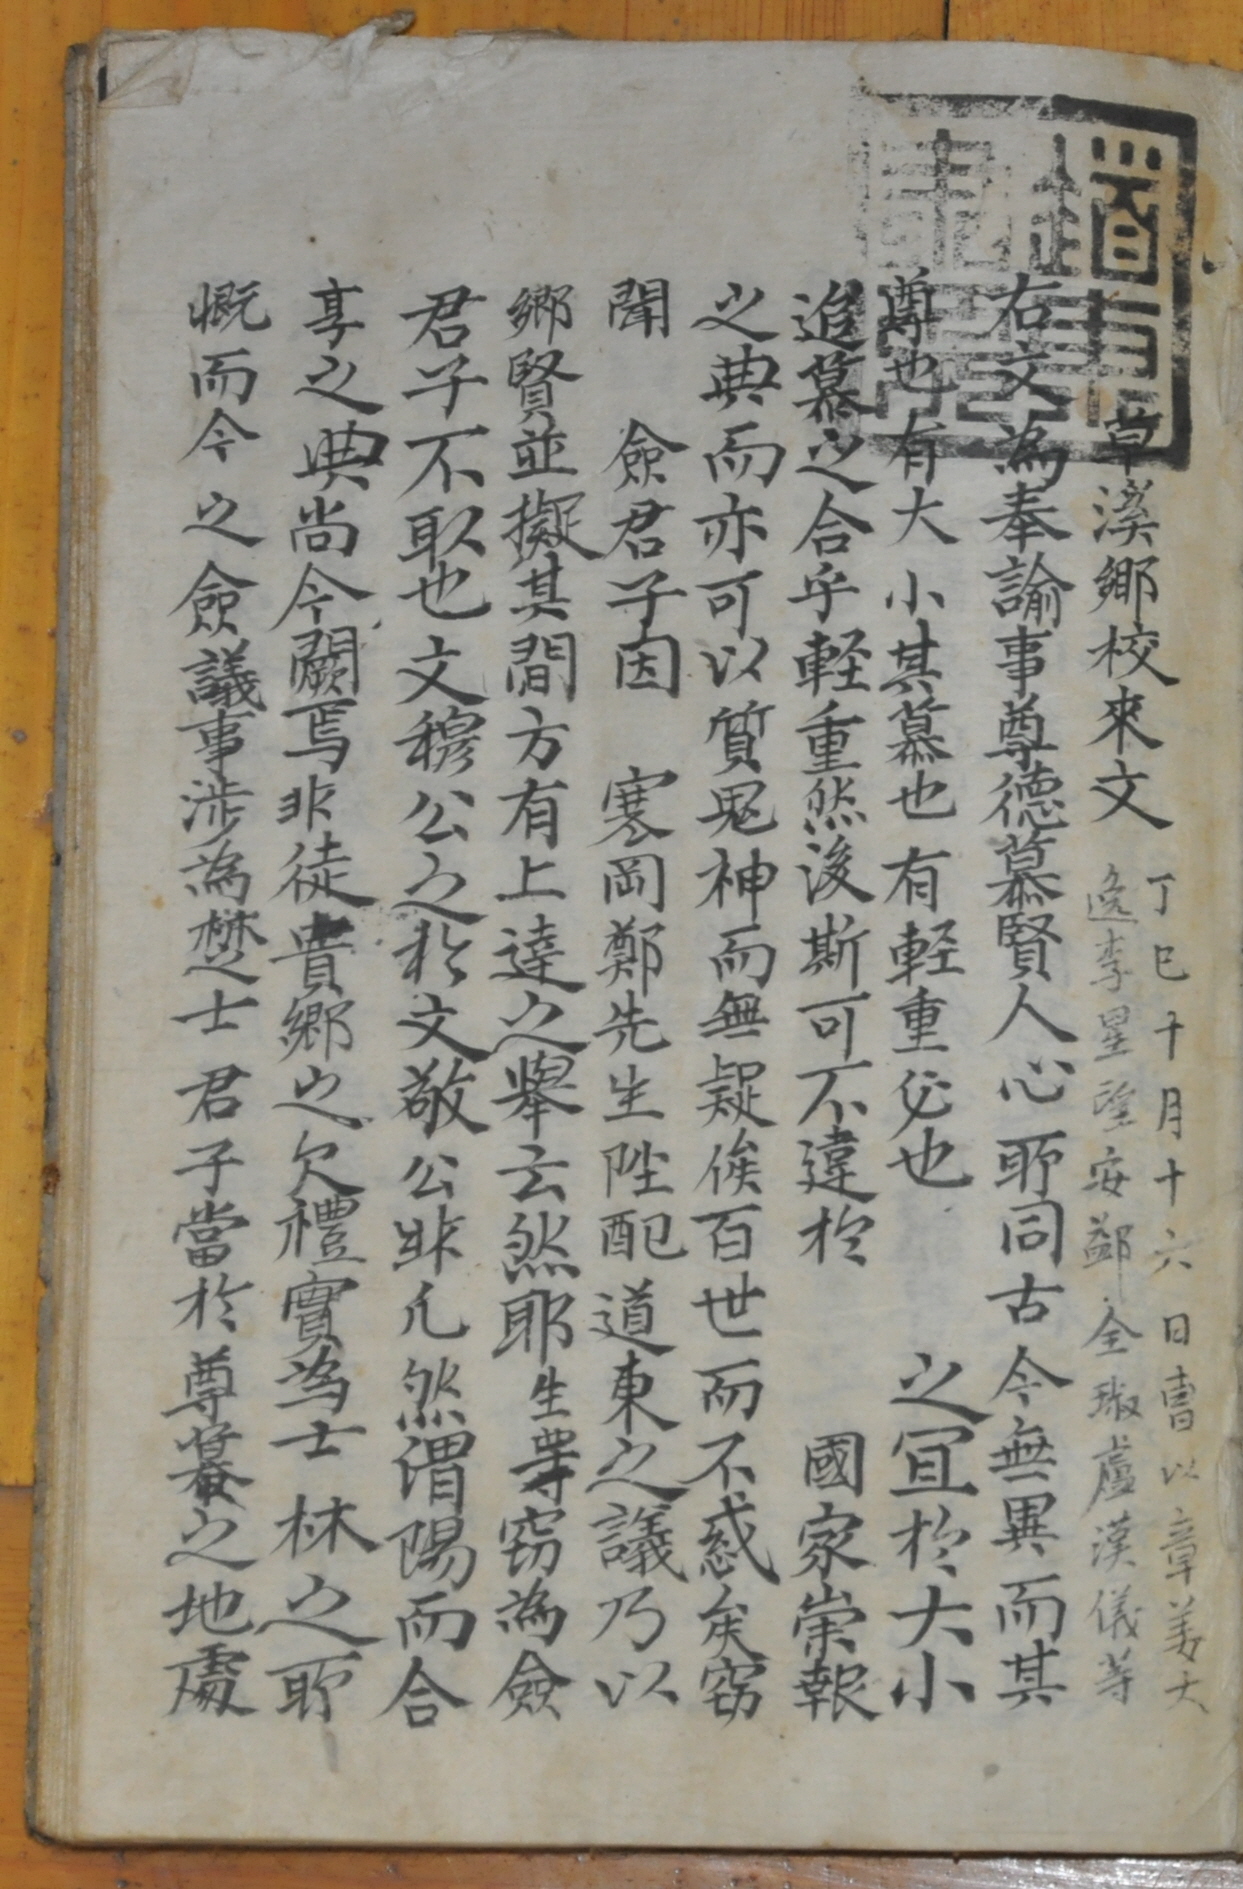 草溪鄉校來文
丁巳十月十六日曺以章姜大
逸李星瑩安鄐全璥盧漢儀等
右文為奉諭事尊德慕賢人心所同古今無異而其
尊也有大小其慕也有軽重必也之宜於大小
追慕之合乎軽重然後斯可不違於國家崇報
之典而亦可以質鬼神而無疑俟百世而不惑矣窃
聞僉君子因寒岡鄭先生陞配道東之議乃以
鄉賢並擬其間方有上達之舉云然耶生等窃為僉
君子不取也文穆公之於文敬公非凡然渭陽而合
享之典尚今闕焉非徒貴鄉之欠禮實為士林之所
慨而今之僉議事涉為楚士君子當於尊葊之地處